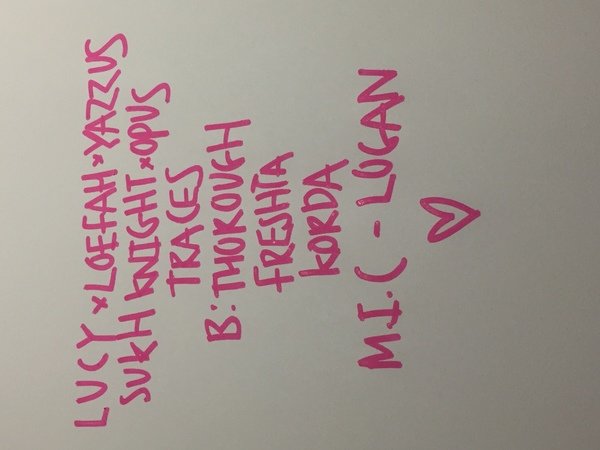 LUCY x LOEFAH x YAZZUS
SUKH KNIGHT x OPUS
TRACES
B:THOROUGH
FRESHTA
KORDA
M.I.C - LOGAN